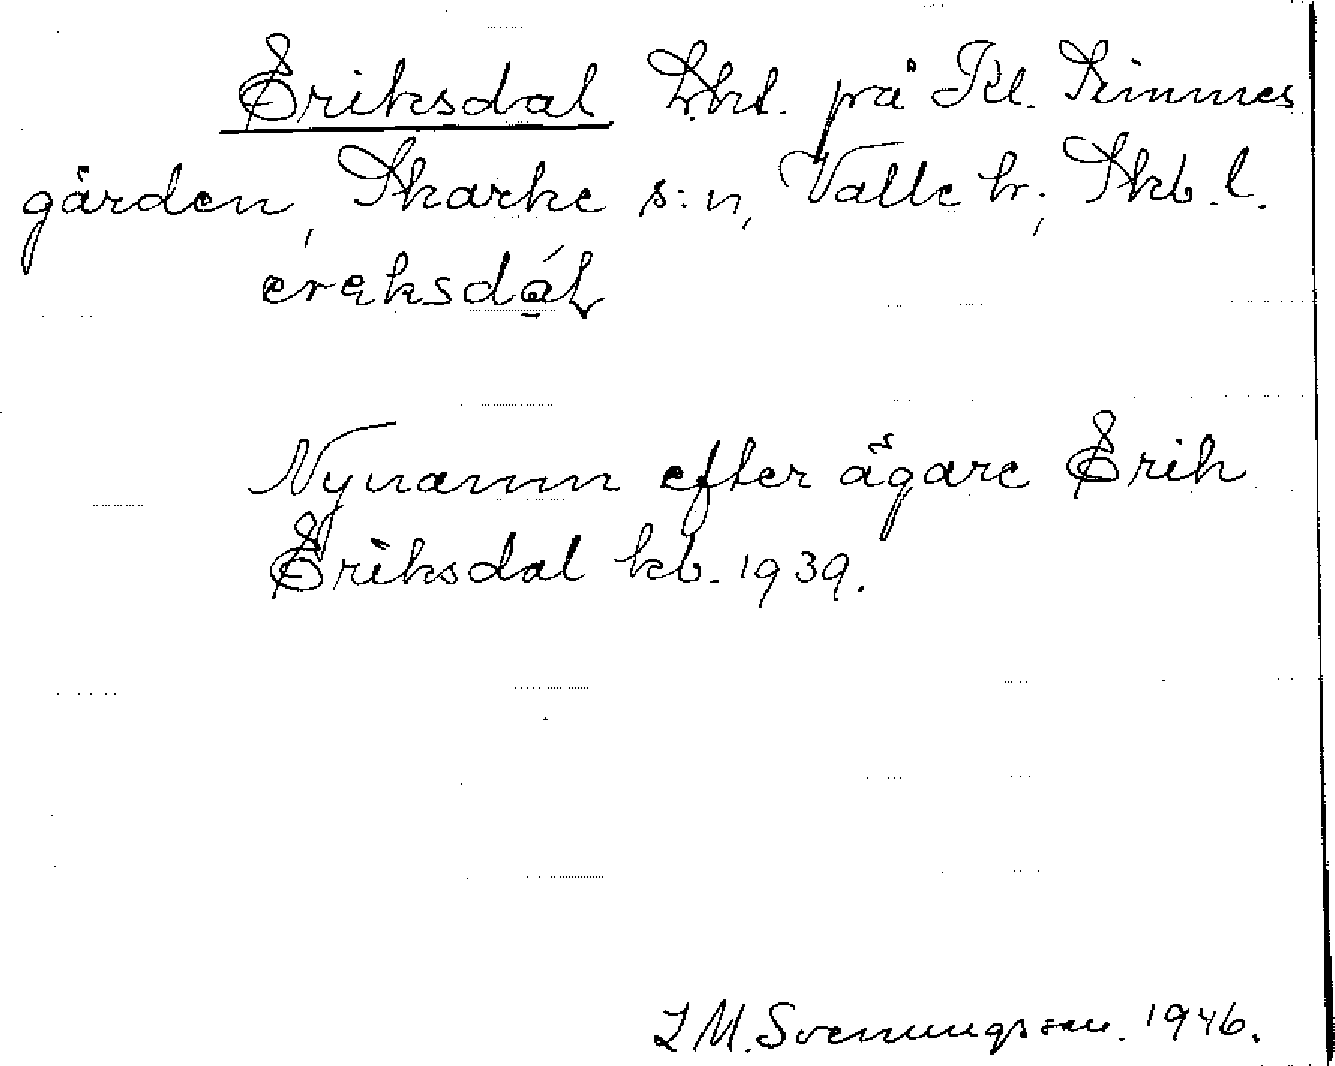 Eriksdal Lht. på Kl. Simmes
gården, Skarke s:n, Valle hr; Skb.l.
ereksdáL
Nynamn efter ägare Erik
Eriksdal kb. 1939.
L M. Svenungsson. 1946.